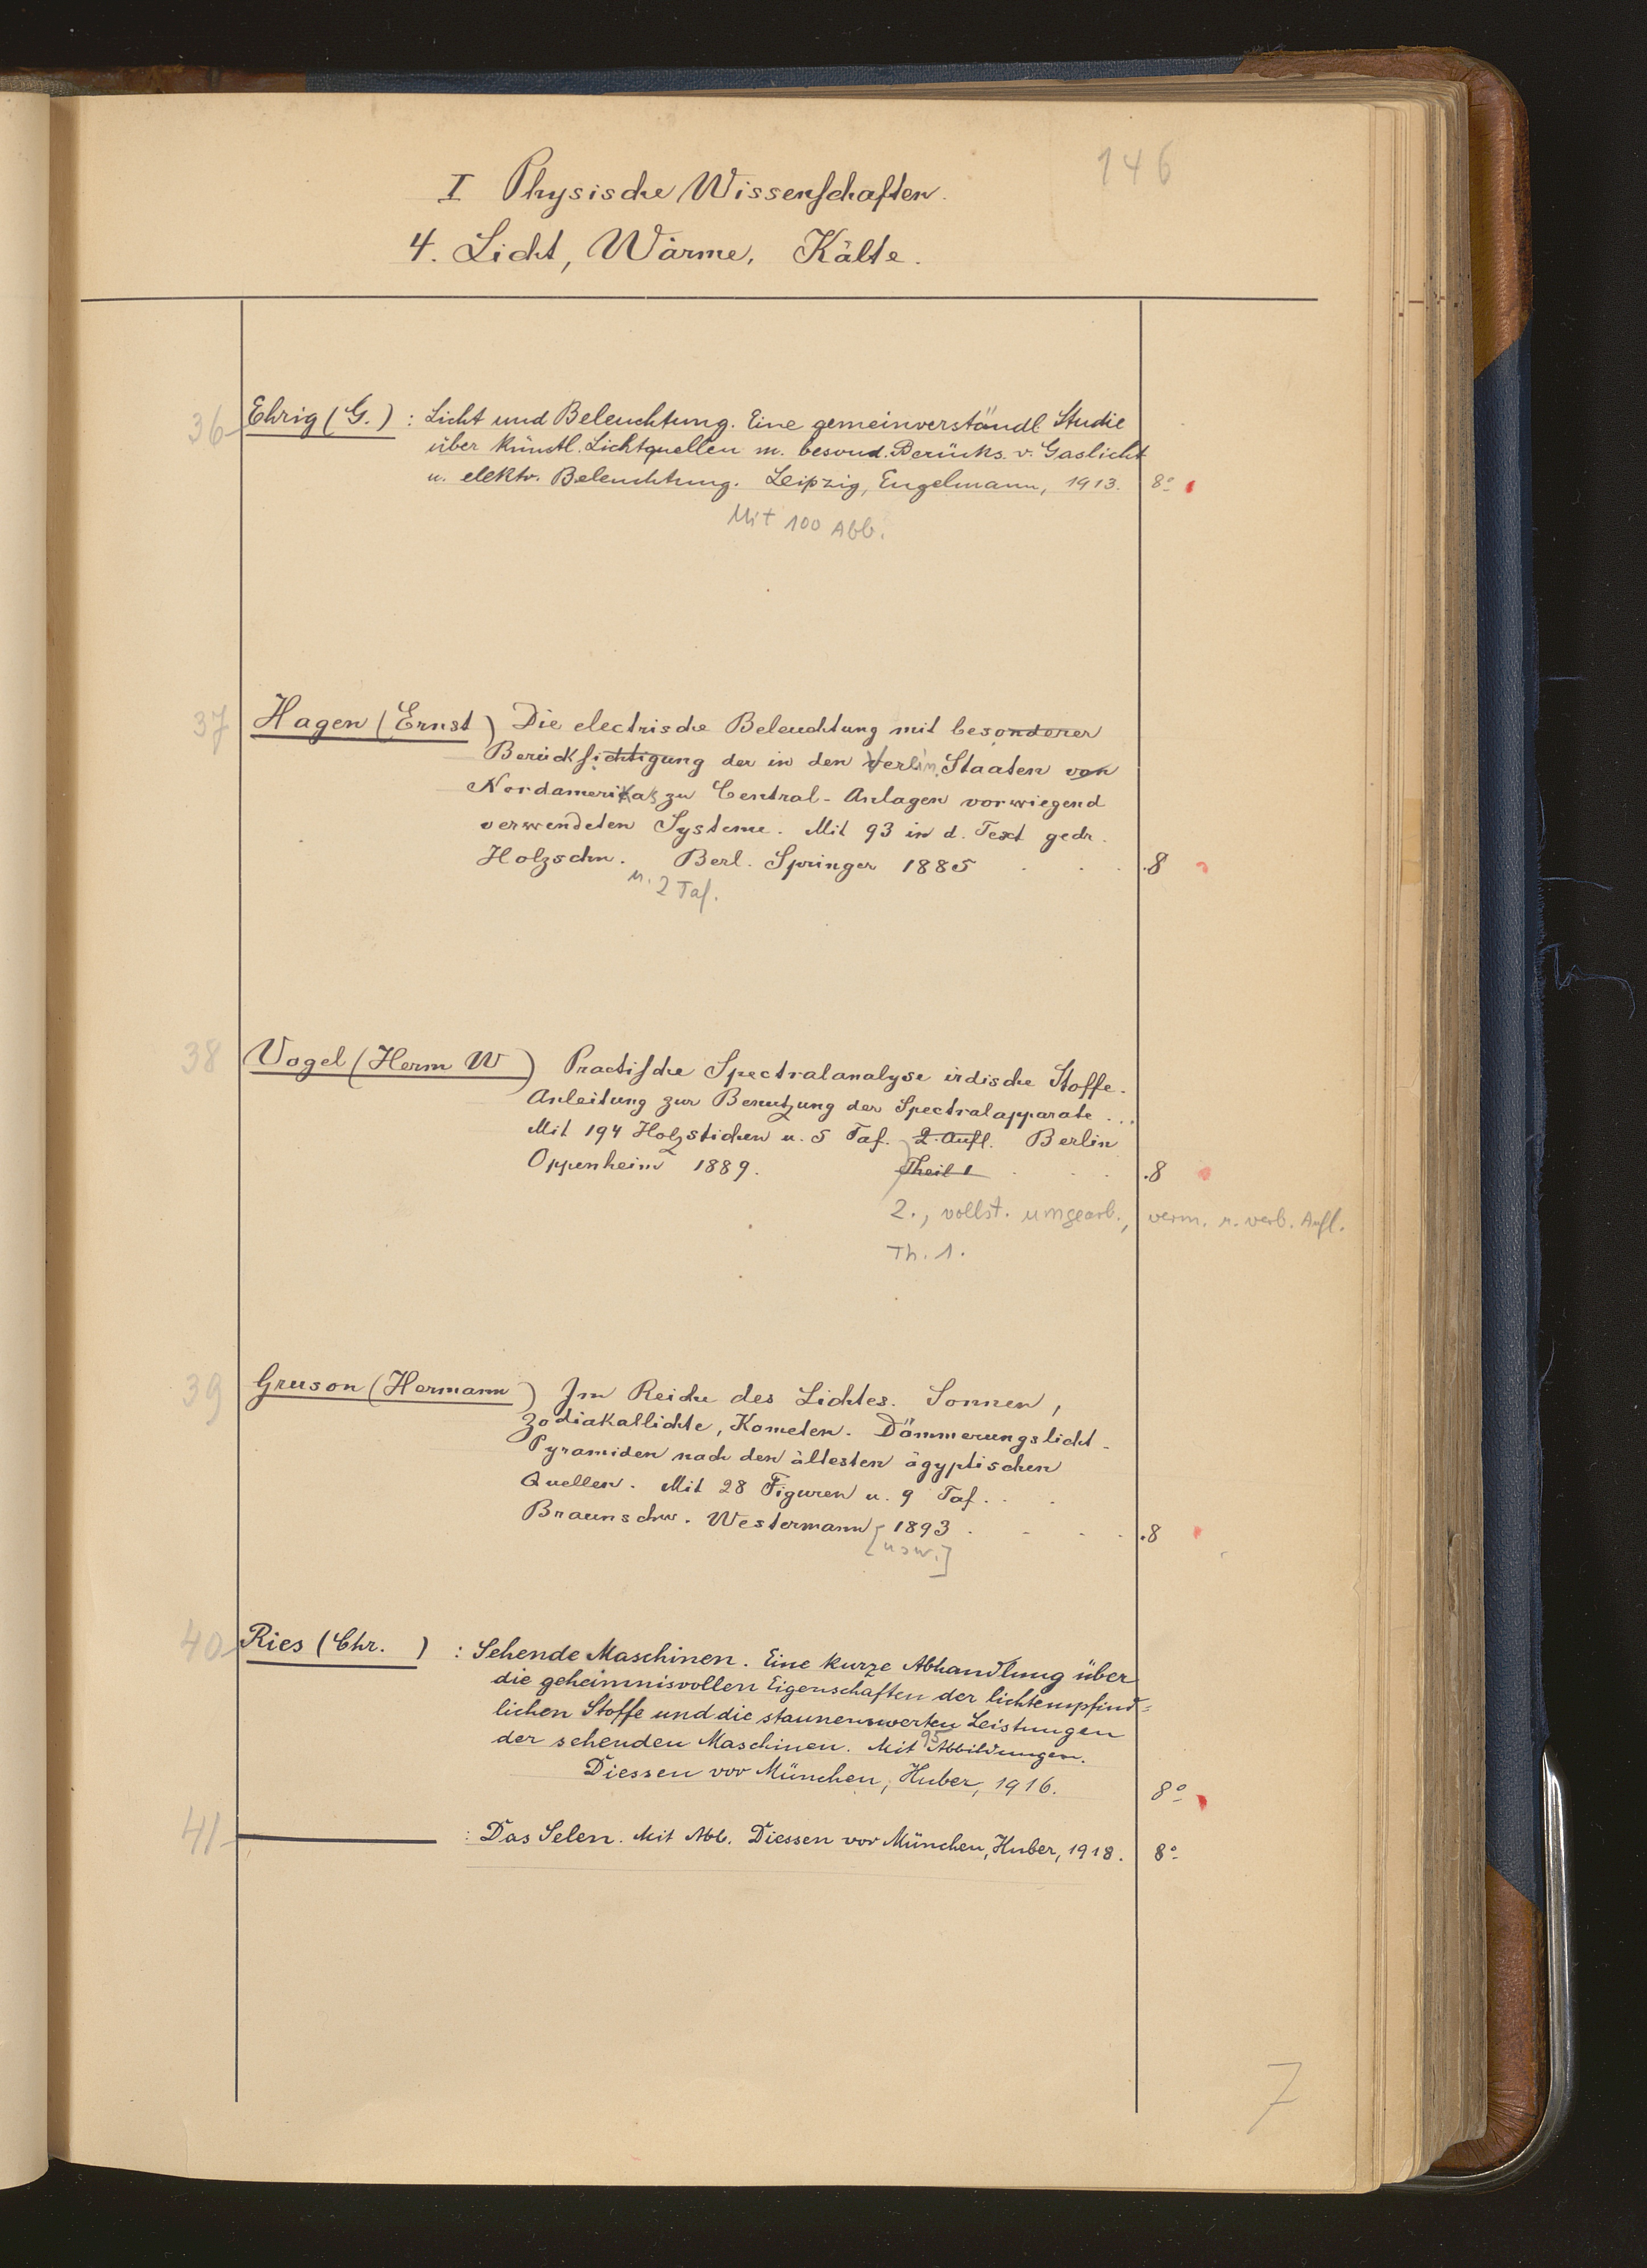 146
I Physische Wissenschaften.
4. Licht, Wärme, Kälte.
36 Ehrig (G.) : Licht und Beleuchtung. Eine gemeinverständl. Studie
über künstl. Lichtquellen m. besond. Berücks. v. Gaslicht
u. elektr. Beleuchtung. Leipzig, Engelmann, 1913. 8°
Mit 100 Abb.
37 Hagen (Ernst) Die electrische Beleuchtung mit besonderer
Berücksichtigung der in den Verein. Staaten von
Nordamerikas zu Central-Anlagen vorwiegend
verwendeten Systeme. Mit 93 in d. Text gedr.
Holzschn. Berl. Springer 1885 . . . . 8
u. 2 Taf.
38 Vogel (Herm W) Practische Spectralanalyse irdische Stoffe.
Anleitung zur Benutzung der Spectralapparate ...
Mit 194 Holzstichen u. 5 Taf. 2. Aufl. Berlin
Oppenheim 1889. Theil 1 . . . . 8
2., vollst. umgearb., verm. u. verb. Aufl.
Th. 1.
39 Gruson (Hermann) Im Reiche des Lichtes. Sonnen,
Zodiakallichte, Kometen. Dämmerungslicht-
Pyramiden nach den ältesten ägyptischen
Quellen. Mit 28 Figuren u. 9 Taf. . .
Braunschw. Westermann 1893 . . . . . 8
[usw.]
40 Ries (Chr. ) : Sehende Maschinen. Eine kurze Abhandlung über
die geheimnisvollen Eigenschaften der lichtempfind=
lichen Stoffe und die staunenswerten Leistungen
der sehenden Maschinen. Mit 95 Abbildungen.
Diessen vor München, Huber, 1916. 8°
41 : Das Selen. Mit Abb. Diessen vor München, Huber, 1918. 8°
7